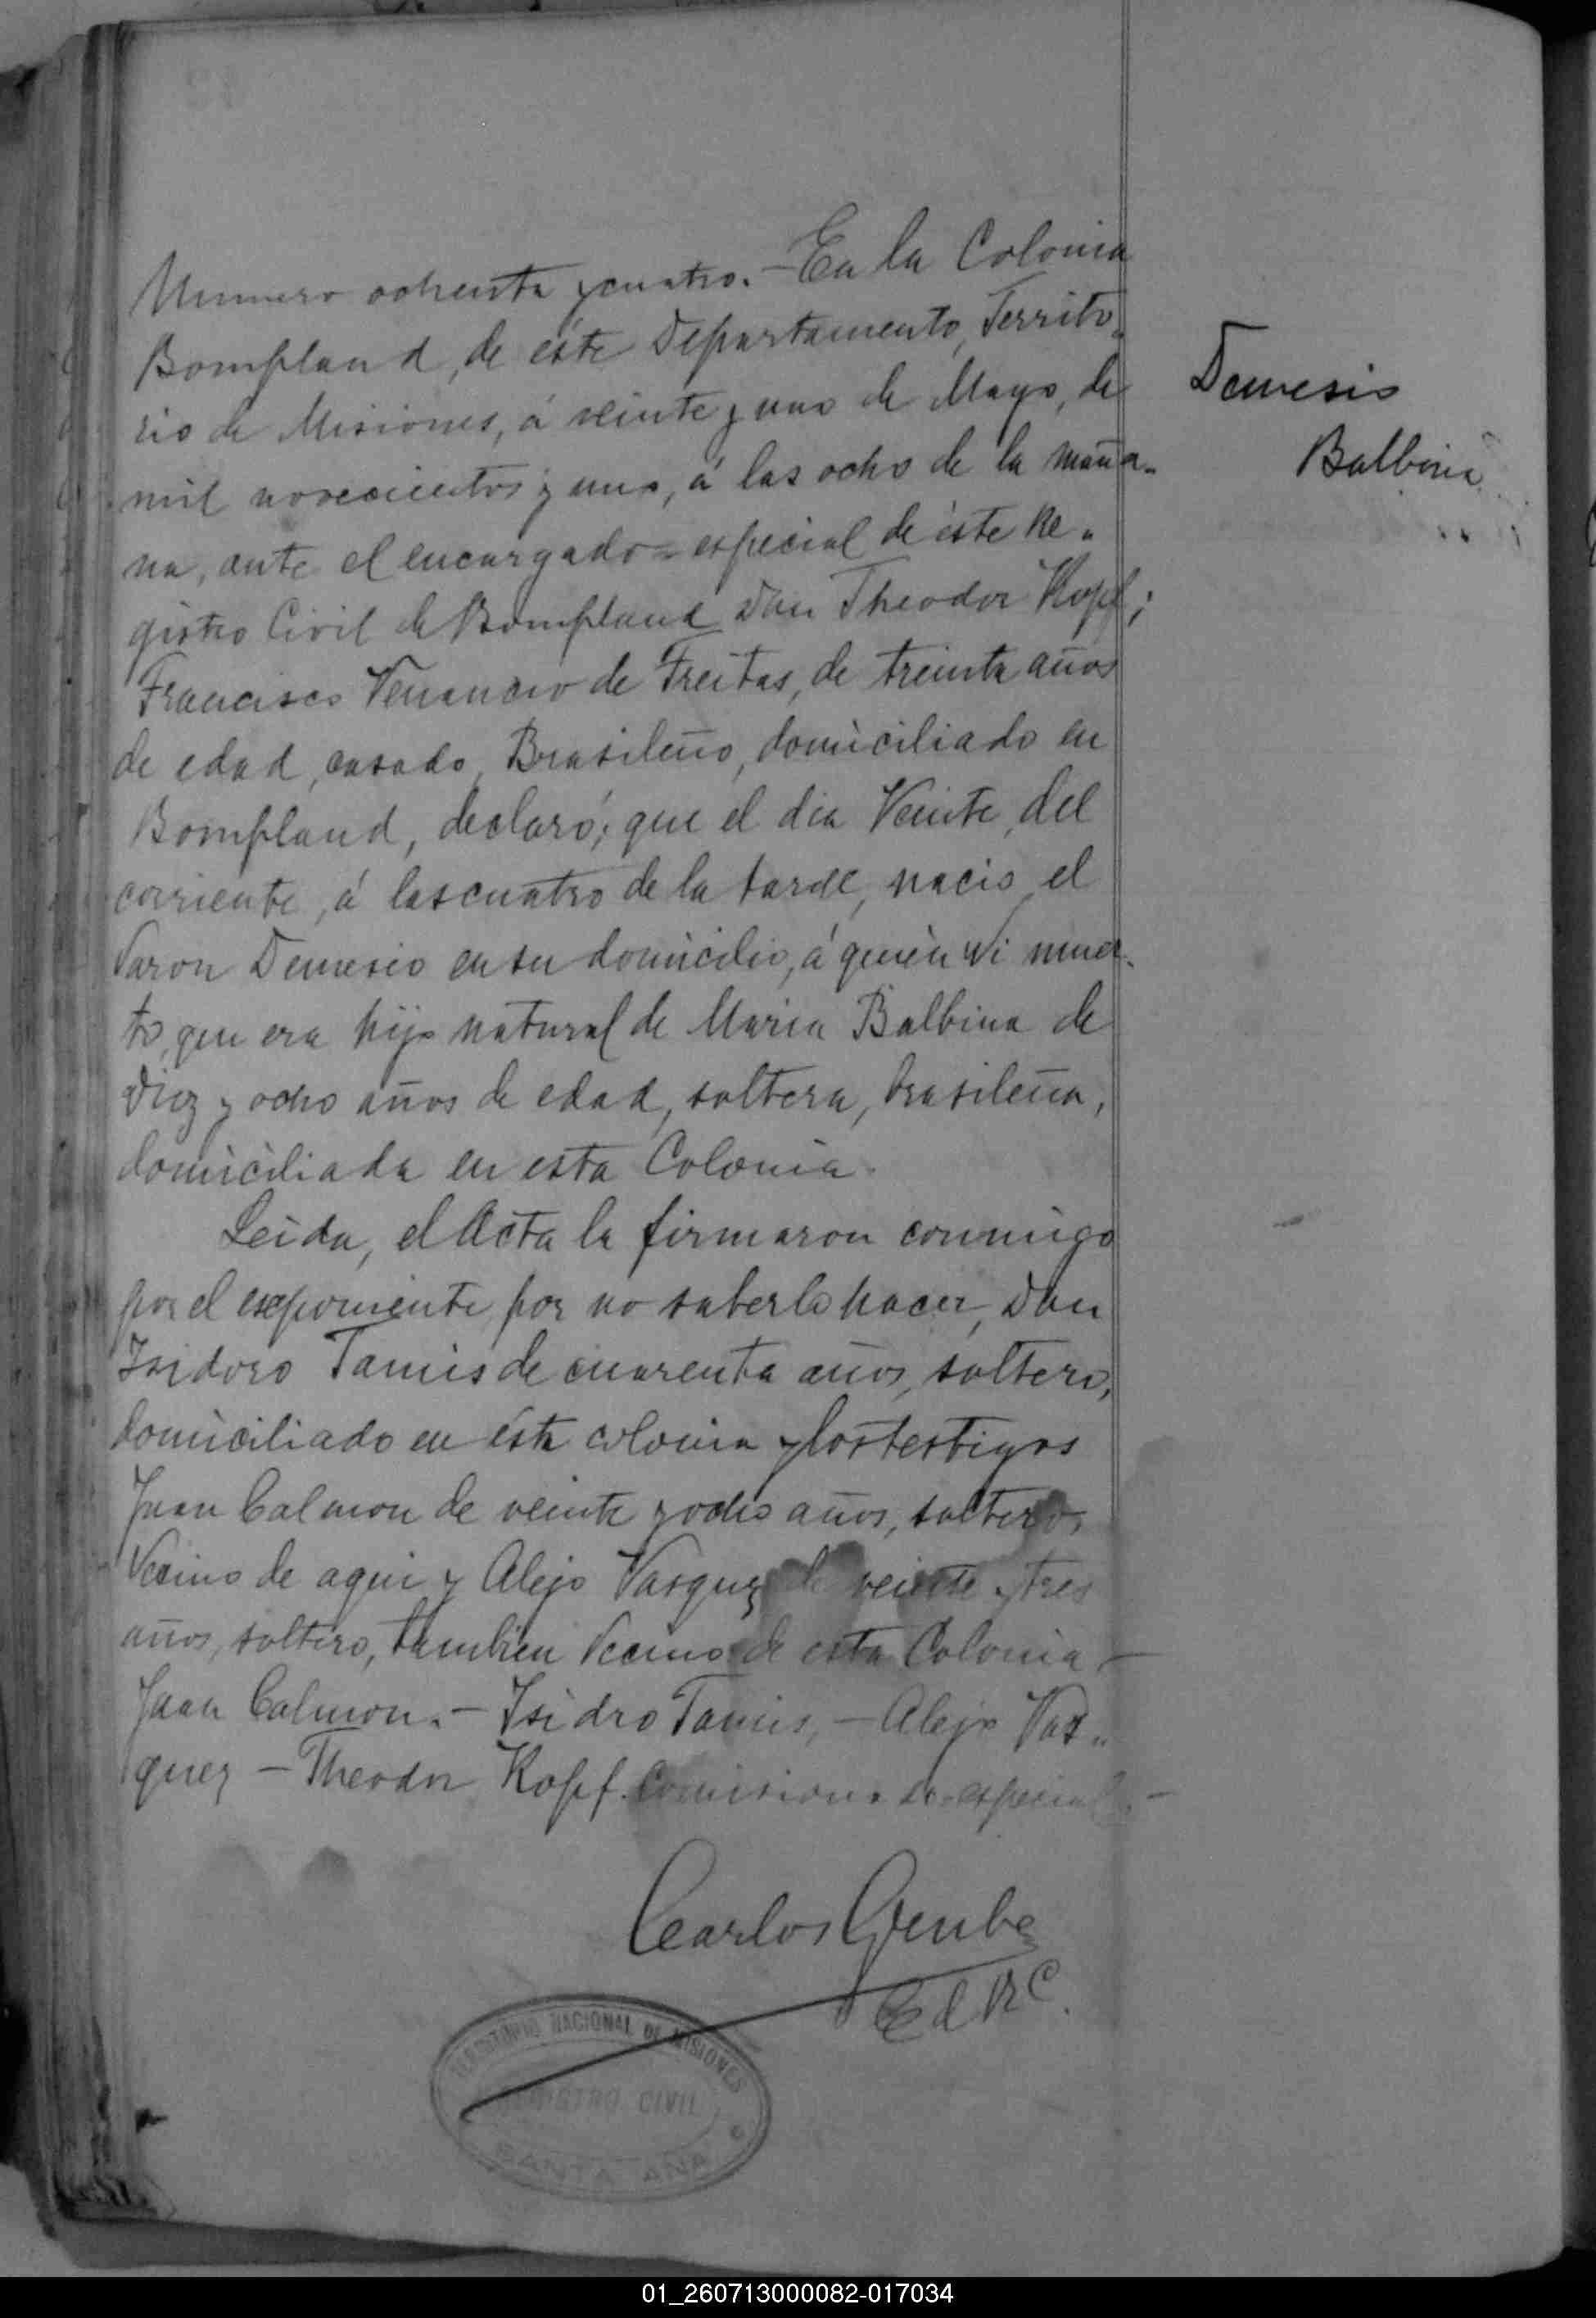 Numero ochenta y cuatro. - En la Colonia
Bompland, de éste Departamento, Territo-
rio de Misiones, á veinte y uno de Mayo, de
mil novecientos y uno, á las ocho de la maña-
na, ante el encargado=especial de éste Re-
gistro Civil de Bompland Don Theodor Kopf;
Francisco Venancio de Freitas, de treinta años
de edad, casado, Brasileño, domiciliado en
Bompland, declaró; que el dia Veinte, del
corriente, á las cuatro de la tarde, nacio el
Varon Demesio en su domicilio, á quien vi muer-
to, que era hijo natural de Maria Balbina de
Diez y ocho años de edad, soltera, brasileña,
domiciliada en esta Colonia.
Leida, el Acta la firmaron conmigo
por el exponiente por no saberlo hacer, Don
Isidoro Tamis de cuarenta años, soltero,
domiciliado en ésta colonia y los testigos
Juan Calmon de veinte y ocho años, soltero,
Vecino de aqui y Alejo Vasquez de veinte y tres
años, soltero, tambien Vecino de esta Colonia -
Juan Calmon. - Isidro Tamis, - Alejo Vas-
quez - Theodor Kopf. Comisionado especial. -
Demesio
Balbina
Carlos Grube
E d R C.
TERRITORIO NACIONAL DE MISIONES
REGISTRO CIVIL
SANTA ANA
01_260713000082-017034